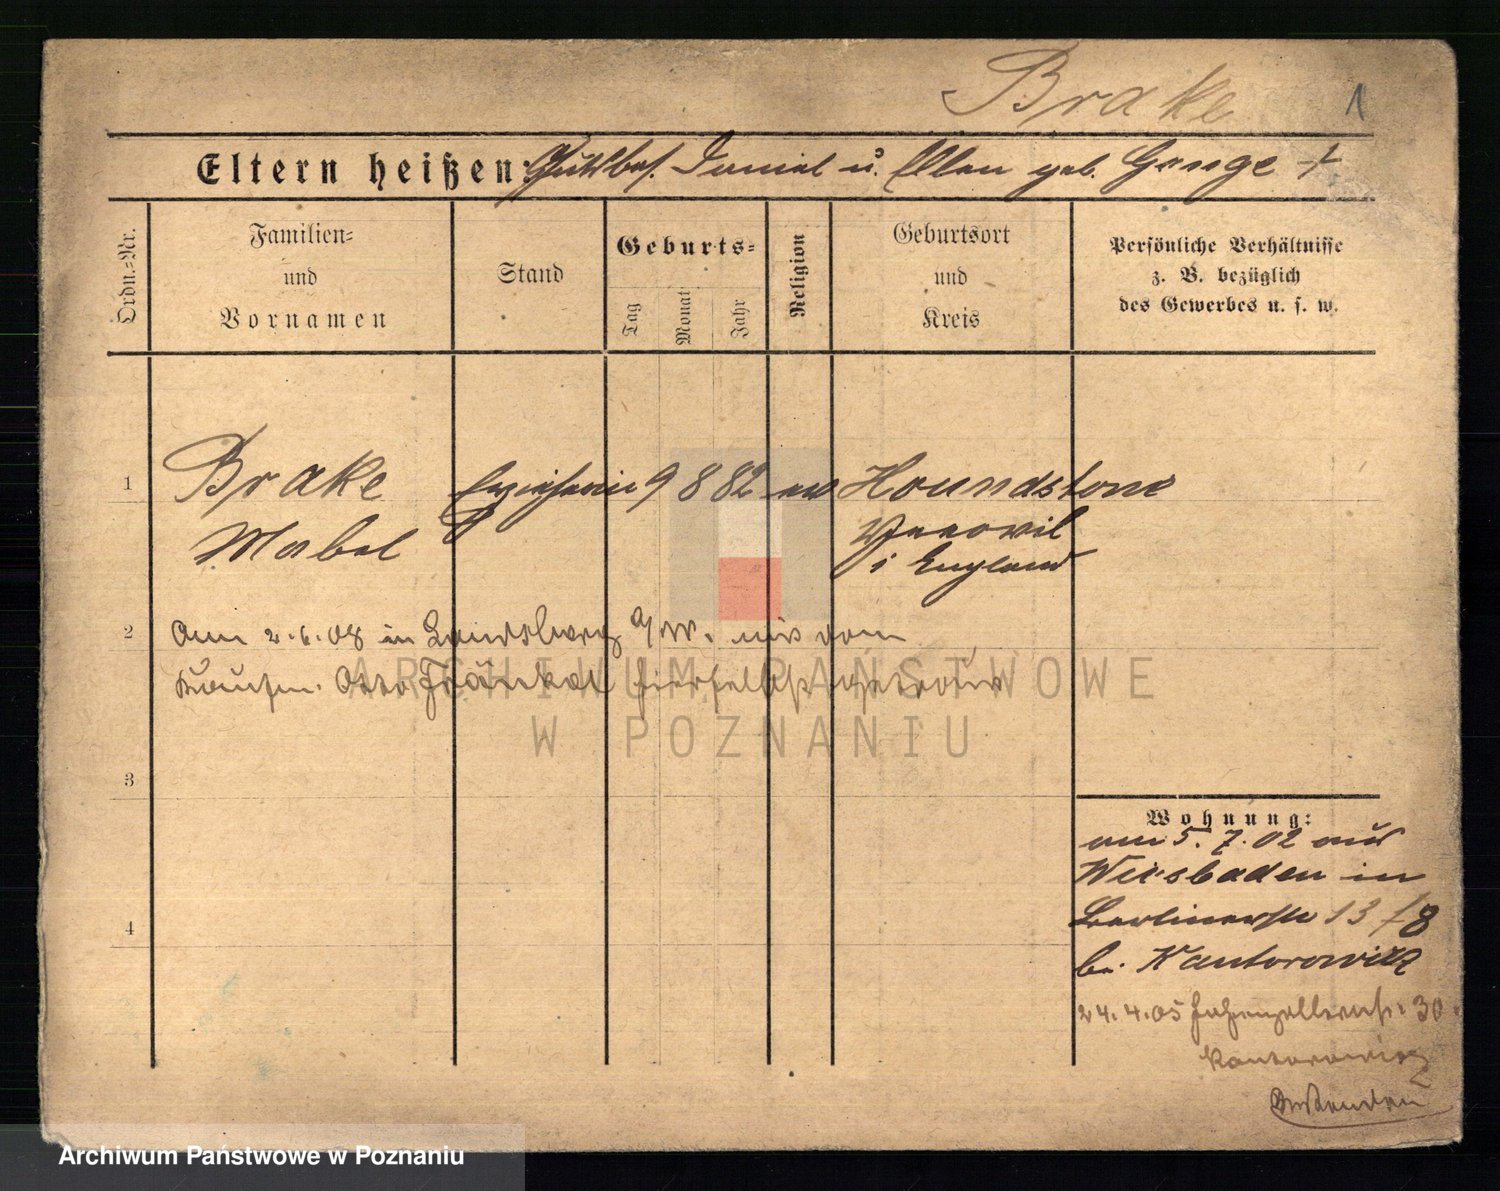 Brake 1
Eltern heißen: Gutsbes. Daniel u. Ellen geb. Genge †
Ordn.-Nr.
Familien-
und
Vornamen
Stand
Geburts-
Tag
Monat
Jahr
Religion
Geburtsort
und
Kreis
Persönliche Verhältnisse
z. B. bezüglich
des Gewerbes u. s. w.
1 Brake Erzieherin 9 8 82 ev Houndstone
Mabel
Yeeovil
i England
2 Am 2.6.08 in Landsberg a/W. mit dem
Kaufm. Otto Fränkel
3
4
Wohnung:
am 5. 7. 02 aus
Wiesbaden in
Berlinerstr 13 / 8
bei Kantorowicz
24.4.05 Hohenzollernstr. 30
Kantorowicz
ARCHIWUM PAŃSTWOWE
W POZNANIU
Archiwum Państwowe w Poznaniu